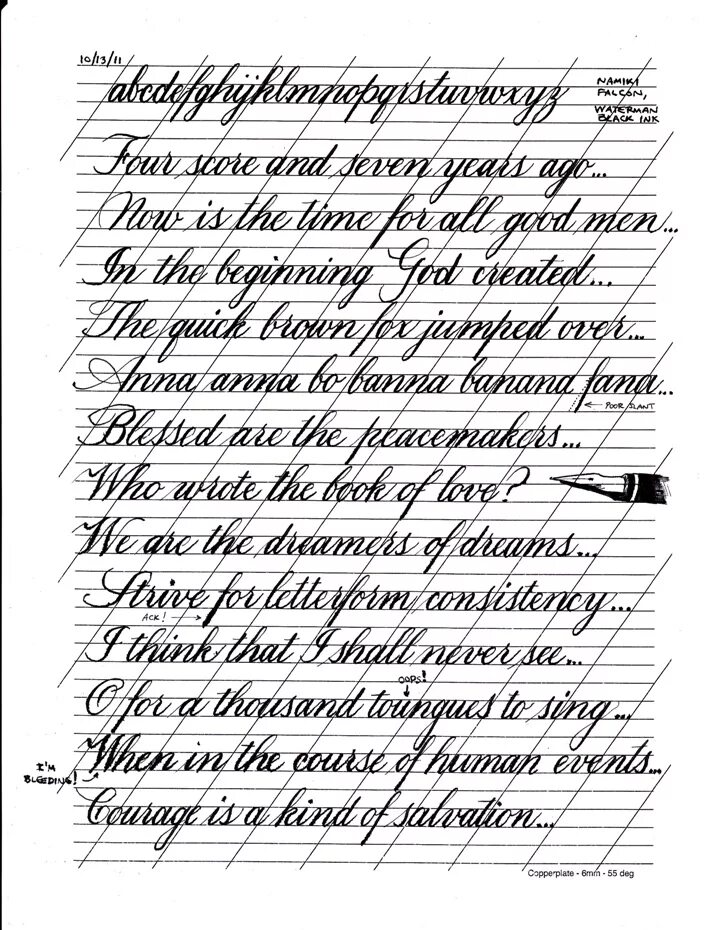 10/13/11
abcdefghijklmnopqrstuvwxyz
NAMIKI
FALCON,
WATERMAN
BLACK INK
Four score and seven years ago...
Now is the time for all good men...
In the beginning God created...
The quick brown fox jumped over...
Anna anna bo banna banana fana...
← POOR SLANT
Blessed are the peacemakers...
Who wrote the book of love?
We are the dreamers of dreams...
Strive for letterform consistency...
ACK! →
I think that I shall never see...
OOPS!
O for a thousand toungues to sing...
When in the course of human events...
I'M
BLEEDING!
Courage is a kind of salvation...
Copperplate - 6mm - 55 deg